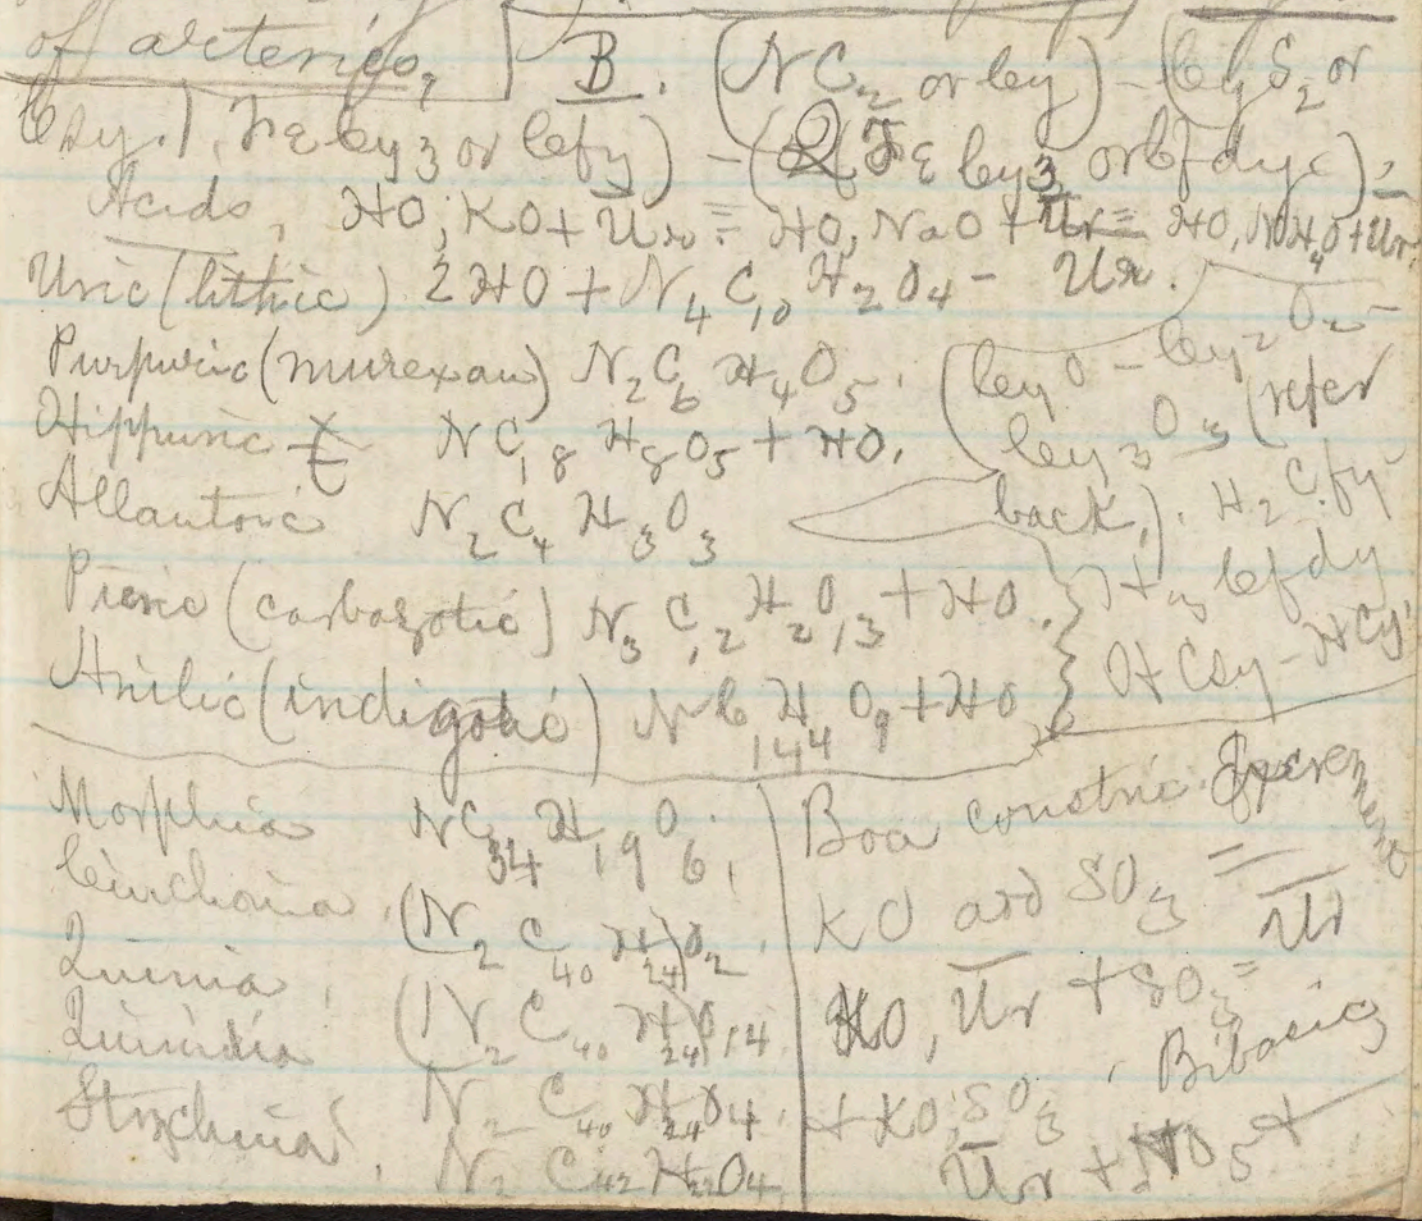 of arteries,
B. (NC₂ or Cy) - (CyS₂ or
Csy.), Fe Cy₃ or Cfy) - (2 Fe Cy₃ or Cfdy
Acids, HO, KO + Ur = HO, NaO + Ur = HO, NH₄O + Ur.
Uric (lithic) 2HO + N₄C₁₀H₂O₄ - Ur.
Purpuric (murexan) N₂C₆H₄O₅. (CyO - Cy₂O₂ -
Hippuric NC₁₈H₈O₅ + HO. Cy₃O₃ (refer
Allantoic N₂C₄H₃O₃ back.). H₂Cfy
Picric (carbazotic) N₃C₁₂H₂O₁₃ + HO. H₃ Cfdy
Anilic (indigotic) NC₁₄H₄O₉ + HO H Csy - HCy
Morphia NC₃₄H₁₉O₆.
Cinchonia, (N₂C₄₀H₂₄)O₂.
Quinia, (N₂C₄₀H₂₄)O,4
Quinidia N₂C₄₀H₂₄O₄.
Strychnia, N₂C₄₂H₂₂O₄.
Boa constric. Excrement
KO and SO₃ = Ur
KO, Ur + SO₃ =
+ KO, SO₃. Bibasic
Ur + NO₅ +